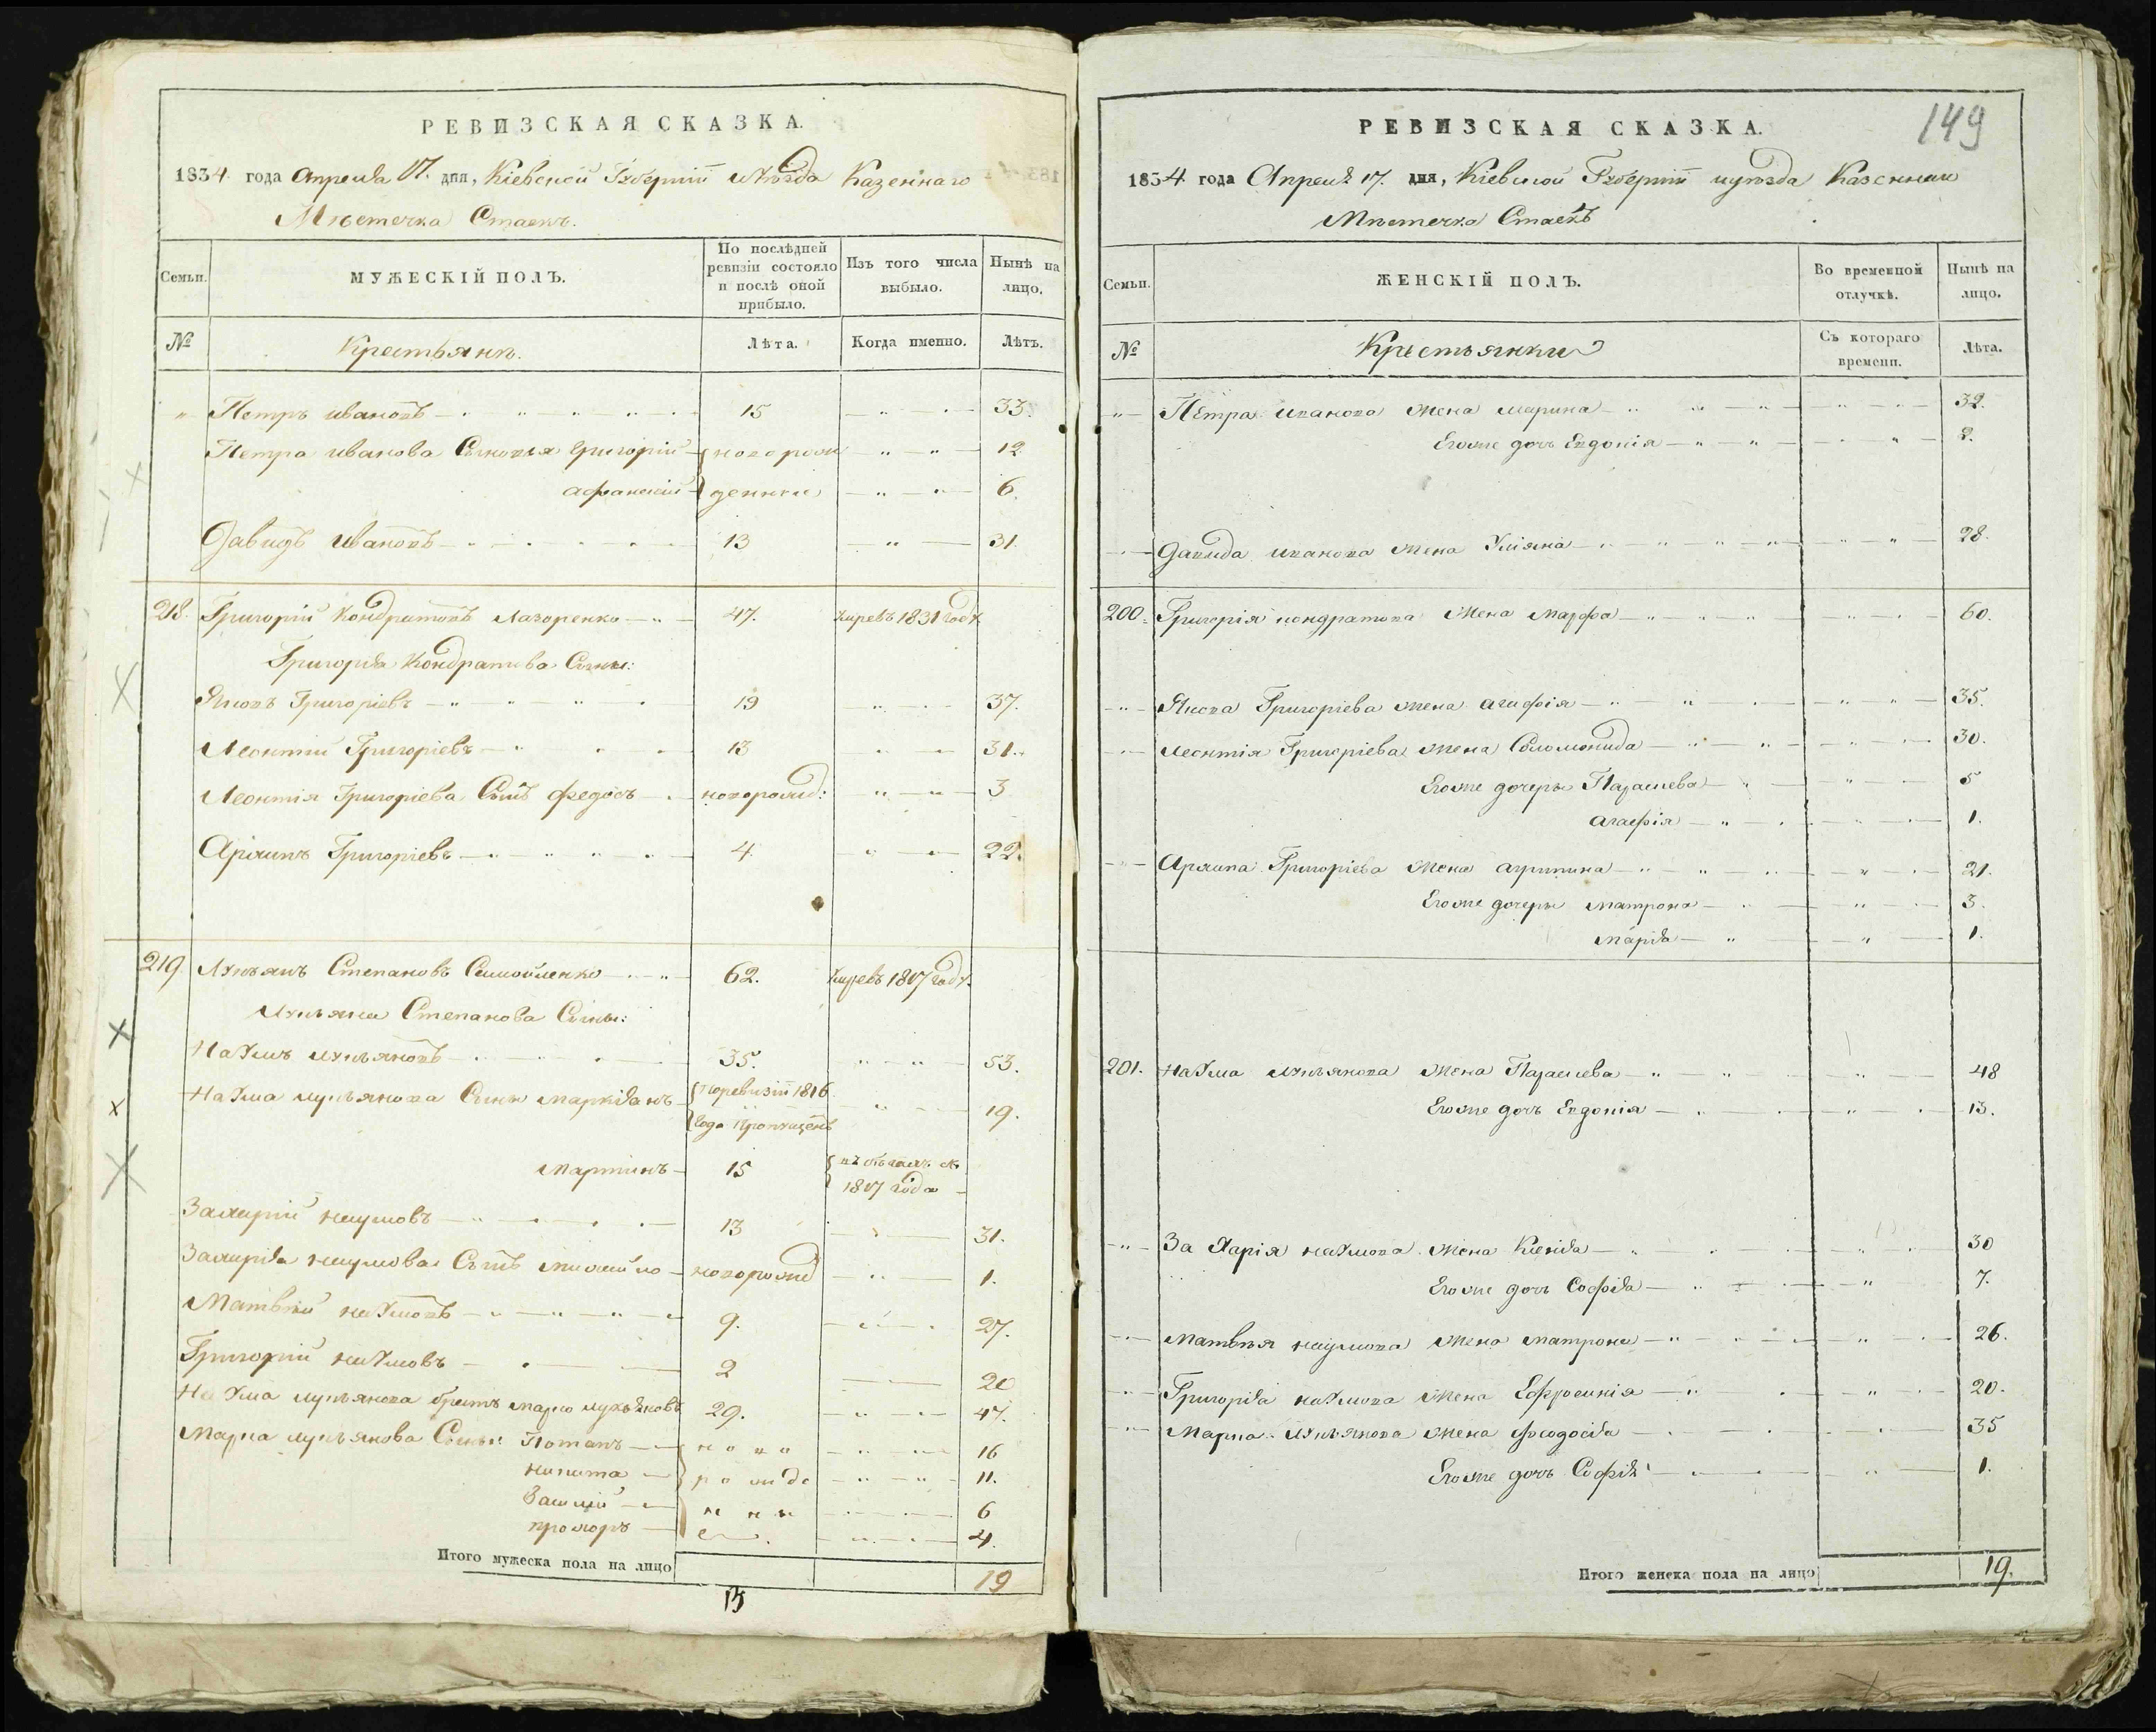 РЕВИЗСКАЯ СКАЗКА.
1834 года Апреля 17. дня, Кіевской Губерніи и уѣзда Казеннаго
Мѣстечка Стаекъ.
Семьи.
МУЖЕСКІЙ ПОЛЪ.
По послѣдней ревизіи состояло и послѣ оной прибыло.
Изъ того числа выбыло.
Нынѣ на лицо.
№
Крестьянъ.
Лѣта.
Когда именно.
Лѣтъ.
" Петръ Ивановъ 15 33.
Петра Иванова Сыновья Григорій новорож 12
Афанасій денные 6.
Давидъ Ивановъ 13 31.
218. Григорій Кондратовъ Лазоренко 47. умревъ 1831 году
Григорія Кондратова Сыны:
Яковъ Григоріевъ 19 37.
Леонтій Григоріевъ 13 31.
Леонтія Григоріева Сынъ Федосъ новорожд: 3
Архипъ Григоріевъ 4. 22.
219. Лукьянъ Степановъ Самойленко 62. умревъ 1817 году.
Лукьяна Степанова Сыны:
Наумъ Лукьяновъ 35. 53.
Наума Лукьянова Сыны Маркіянъ По ревизіи 1816 19.
года пропущенъ
Мартинъ 15 въ бегахъ съ
1817 года
Захарій Наумовъ 13 31.
Захарія Наумова Сынъ Михайло новорожд 1.
Матвѣй Наумовъ 9. 27.
Григорій Наумовъ 2 20
Наума Лукьянова братъ Марко Лукьяновъ 29. 47.
Марка Лукьянова Сыны: Потапъ ново 16
Никита рожде 11.
Василій нны 6
Прохоръ е. 4.
Итого мужеска пола на лицо 19
13
149
РЕВИЗСКАЯ СКАЗКА.
1834 года Апреля 17. дня, Кіевской Губерніи и уѣзда Казеннаго
Мѣстечка Стаекъ
Семьи.
ЖЕНСКІЙ ПОЛЪ.
Во временной отлучкѣ.
Нынѣ на лицо.
№
Крестьянки
Съ котораго времени.
Лѣта.
Петра Иванова жена Марина 32.
Егоже дочь Евдокія 2.
Давида Иванова жена Уліяна 28.
200. Григорія Кондратова Жена Марфа 60.
Якова Григоріева жена Агафія 35.
Леонтія Григоріева жена Соломонида 30.
Егоже дочери Параскева 5
Агафія 1.
Архипа Григоріева жена Агрипина 21.
Егоже дочери Матрона 3.
Марія 1.
201. Наума Лукьянова жена Параскева 48
Егоже дочь Евдокія 13.
Захарія Наумова жена Ксенія 30
Егоже дочь Софія 7.
Матвѣя Наумова жена Матрона 26.
Григорія Наумова жена Ефросинія 20.
Марка Лукьянова жена Феодосія 35
Егоже дочь Софія 1.
Итого женска пола на лицо 19.